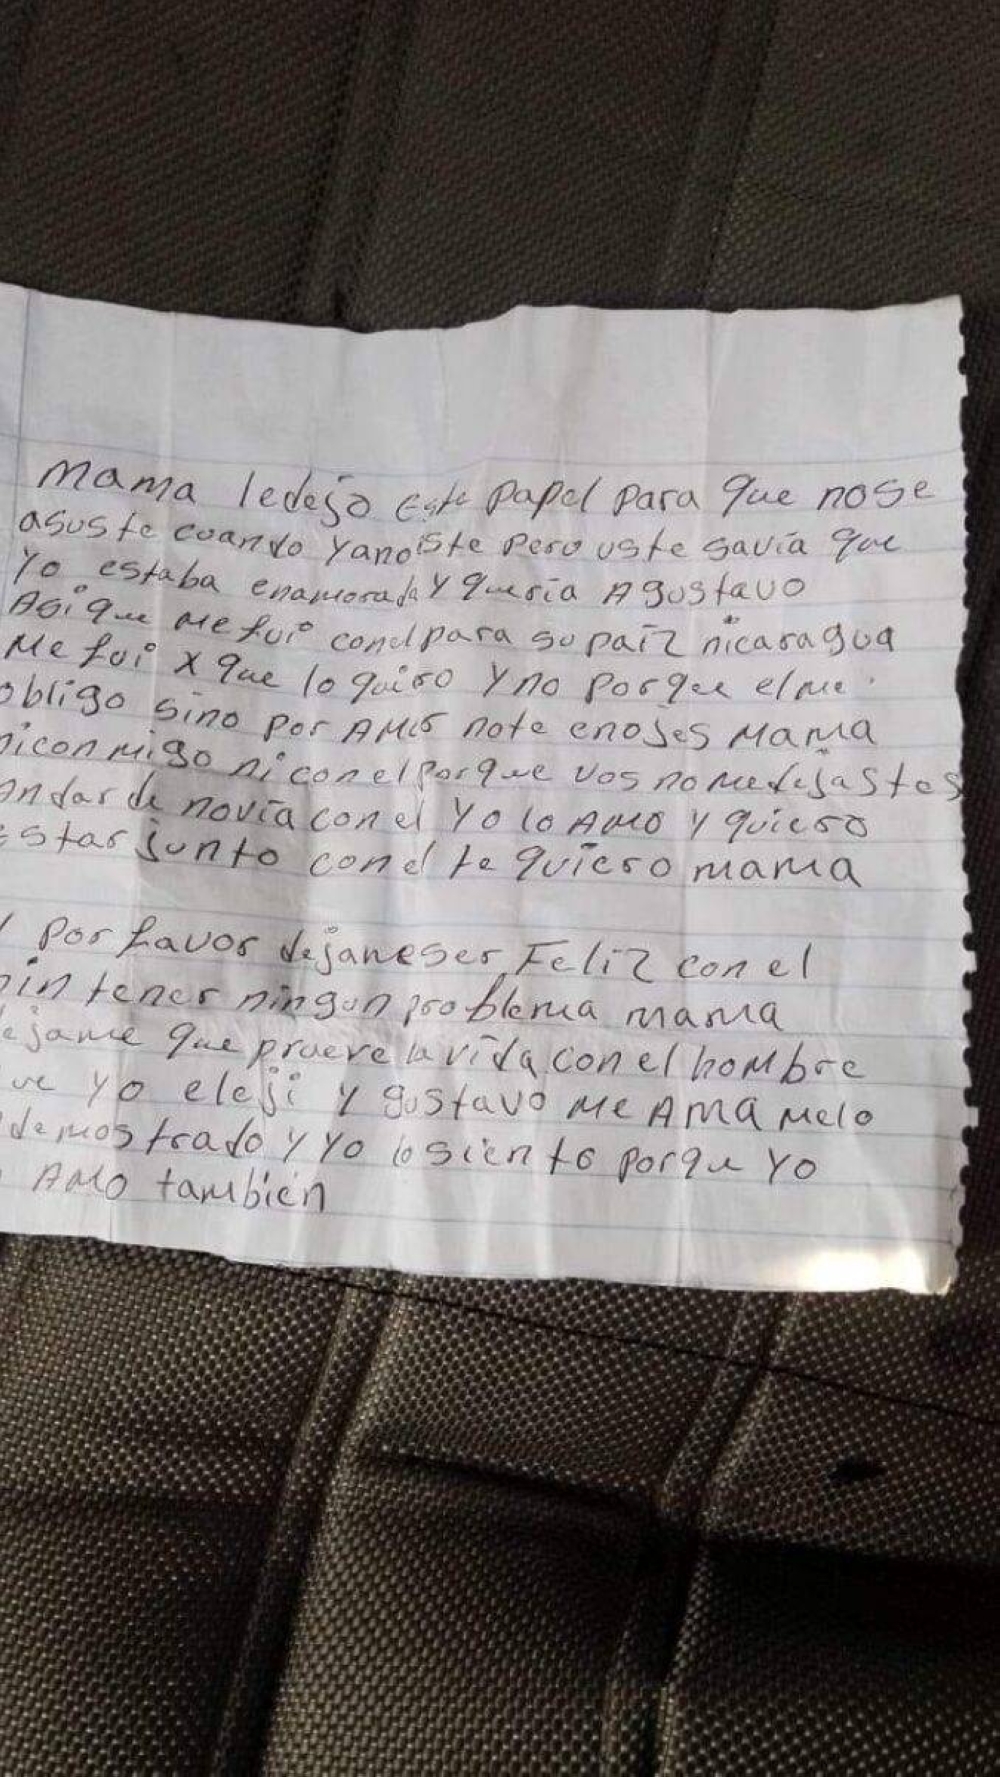 Mama ledejo Este papel para que nose
asuste cuando Yanoiste pero uste savia que
Yo estaba enamorada Y queria A gustavo
Asi que me fui conel para su paiz nicaragua
Me fui x que lo quiro Y no porque el me
obligo sino por AMO note enojes Mama
niconmigo ni con el porque vos no me dejastes
andar de novia con el Yo lo AMO y quiero
Estar junto con el te quiero mama
Por favor dejameser Feliz con el
sin tener ningun problema mama
dejame que prueve la vida con el hombre
que yo eleji y gustavo Me AMA Melo
demostrado y Yo lo siento porque Yo
AMO también